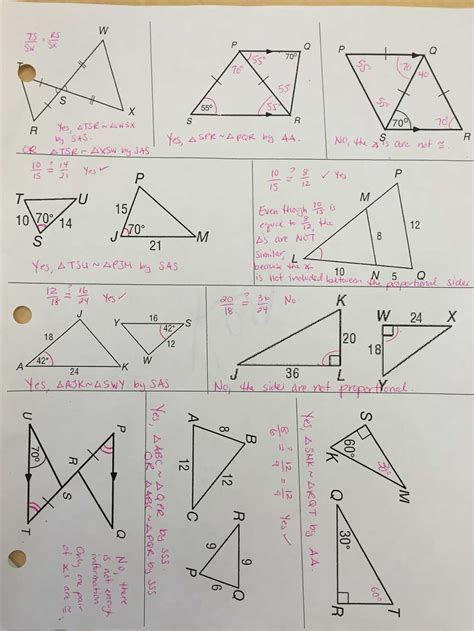 TS/SX = RS/SX
W
T
S
R
X
Yes, △TSR ~ △WSX
by SAS.
OR △TSR ~ △XSW by SAS
P
Q
70°
70°
55°
55°
55°
S
R
Yes, △SPR ~ △PQR by AA.
P
Q
55°
70
40
55°
70°
70°
S
R
No, the ∠s are not ≅.
10/15 ?= 14/21 Yes ✓
T
U
10
70°
14
S
P
15
70°
J
21
M
Yes, △TSU ~ △PJM by SAS
10/15 ?= 8/12 ✓ Yes
Even though 10/15 is
equal to 8/12, the
△s are NOT
similar,
because the ∠
is not included between the proportional sides
P
M
12
8
L
10
N
5
Q
12/18 ?= 16/24 Yes ✓
J
18
42°
A
24
K
Y
16
S
42°
12
W
Yes, △AJK ~ △SWY by SAS
20/18 ?= 36/24 No
K
20
J
36
L
W
24
X
18
Y
No, the sides are not proportional
U
P
70°
R
S
T
Q
No, there
is not enough
information
Only one pair
of ∠s are ≅
Yes, △ABC ~ △QPR by SSS
OR △ABC ~ △PQR by SSS
A
8
B
12
12
C
8/6 ?= 12/9 = 12/9 Yes ✓
R
Q
9
9
6
P
Yes, △SMK ~ △RQT by AA
S
60°
30°
K
M
Q
30°
60°
R
T